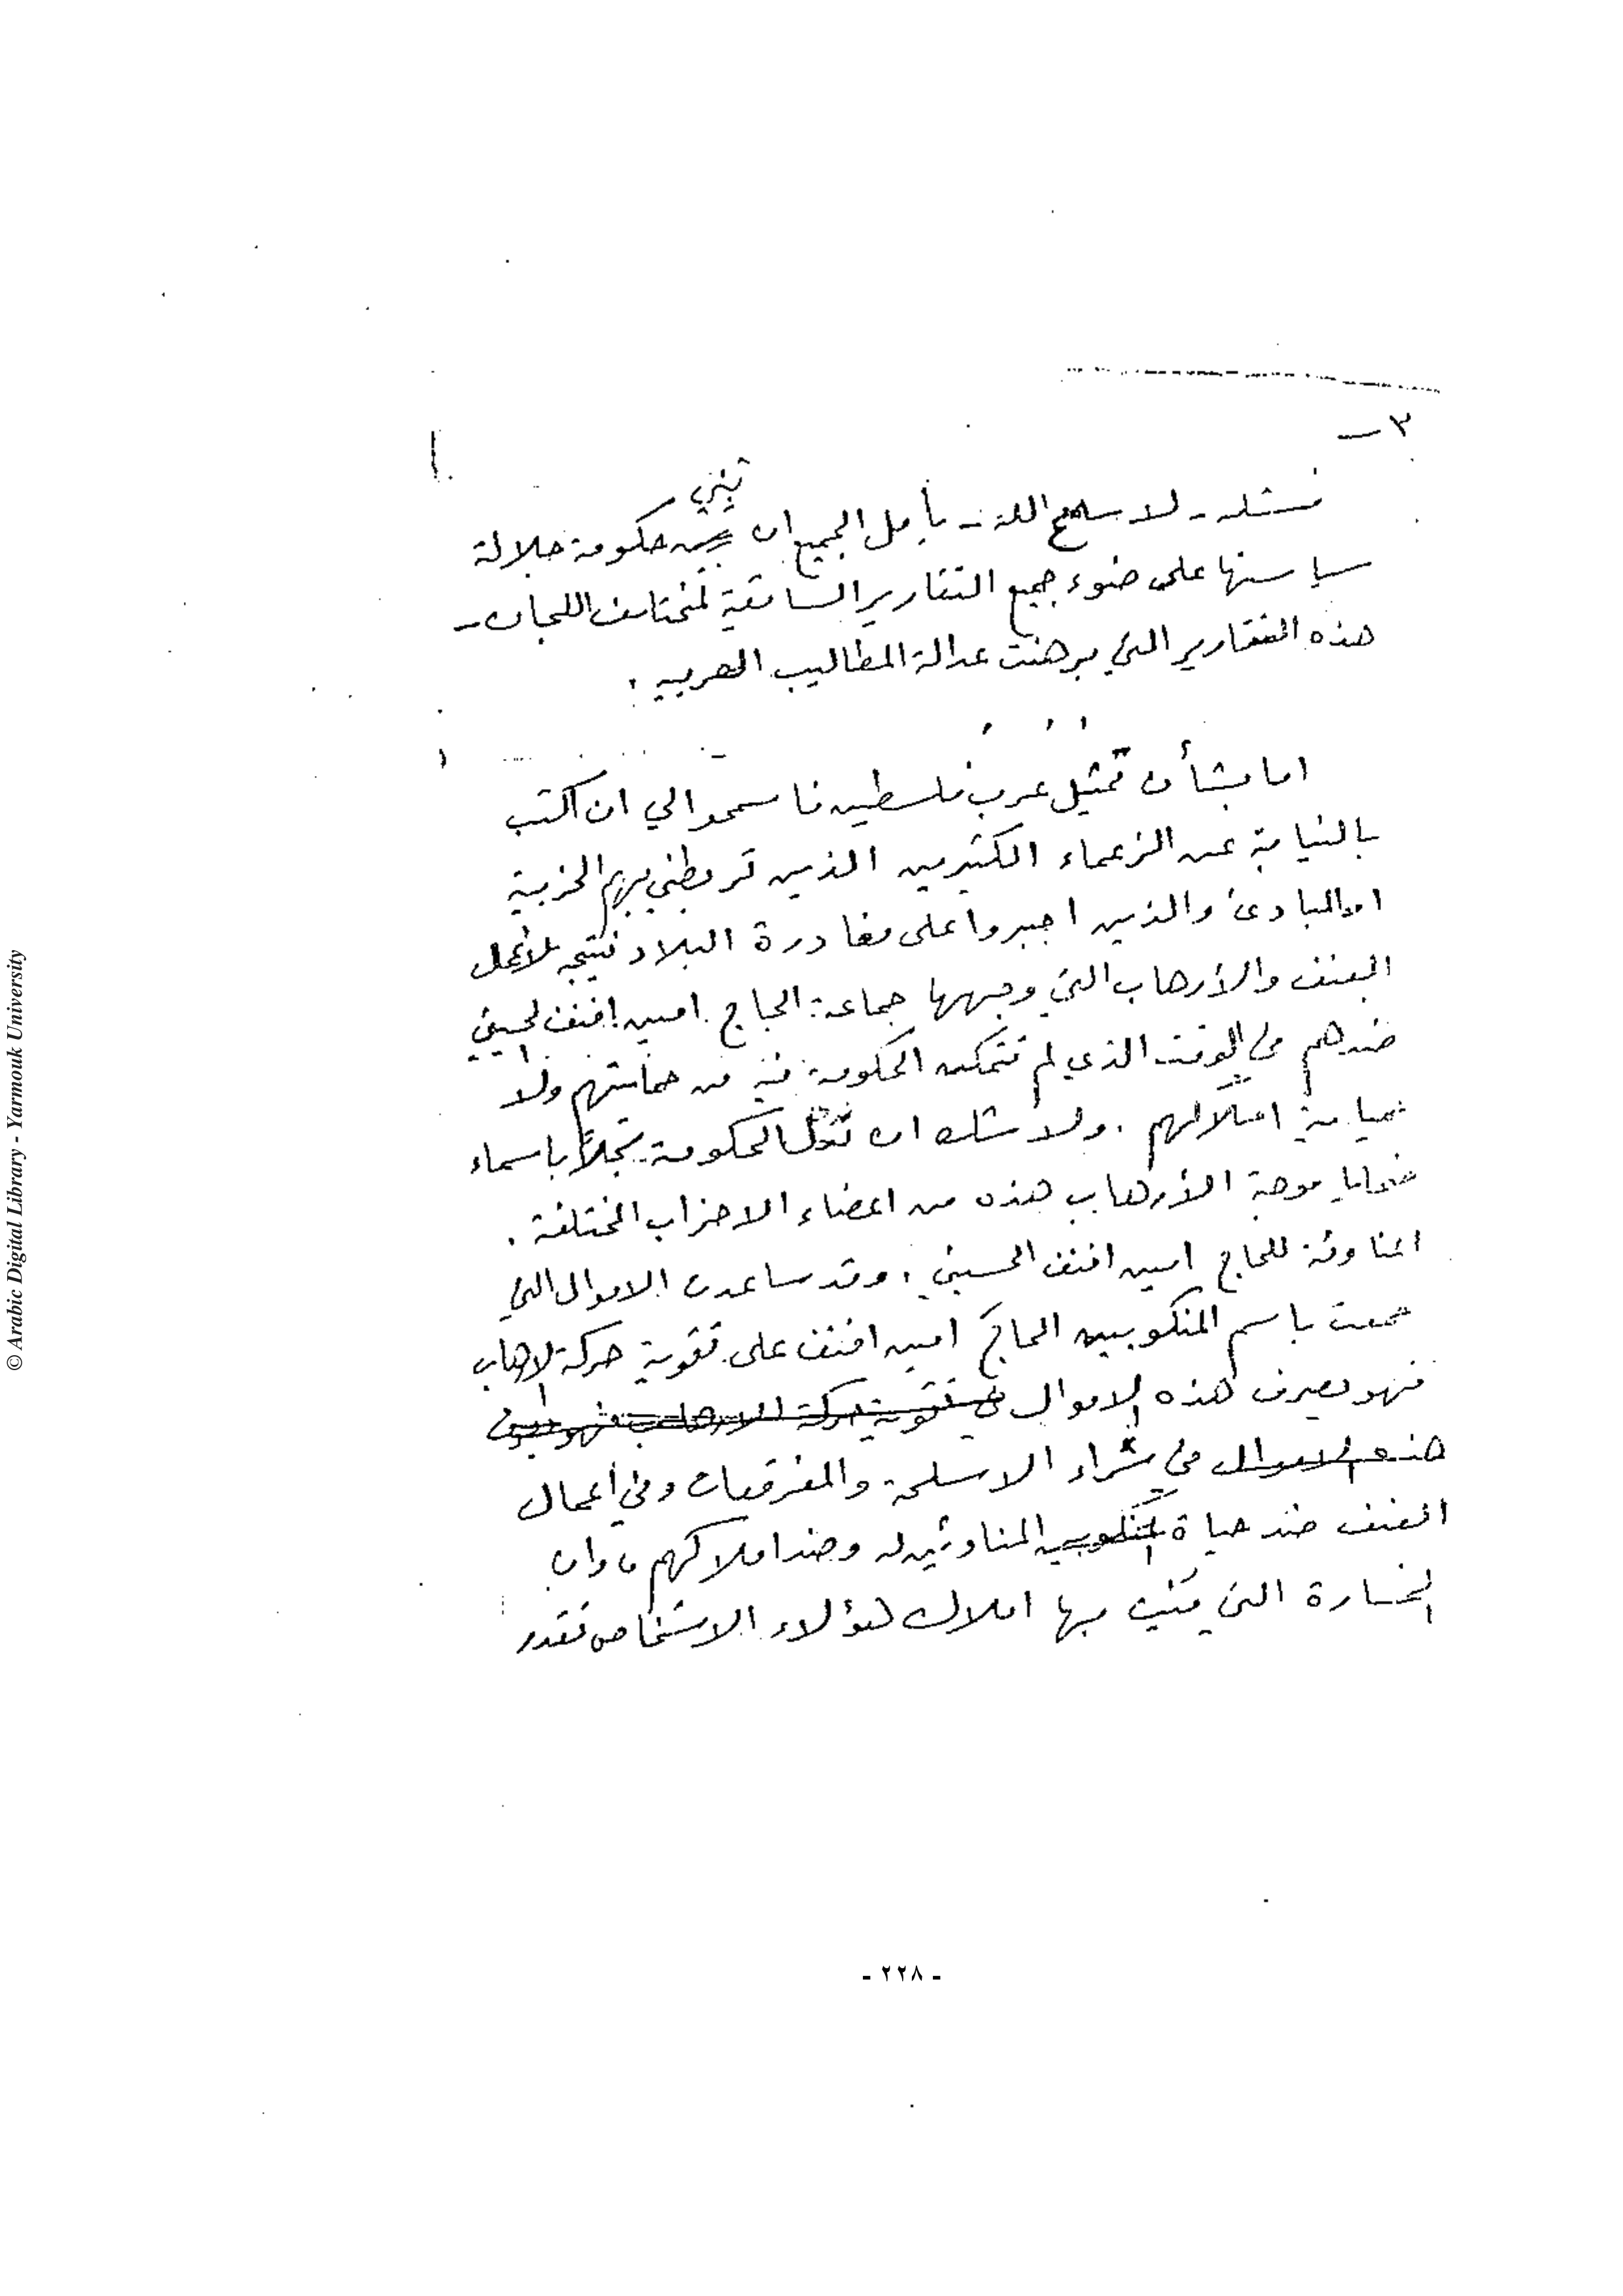 ٣ –
فشله - لا سمح الله - يأمل الجميع ان تبني حكومة جلالة
سياستها على ضوء جميع التقارير السابقة لمختلف اللجان -
هذه التقارير التي برهنت عدالة المطاليب العربيه .
اما بشأن تمثيل عرب فلسطين فاسمحوا لي ان اكتب
بالنيابة عن الزعماء الكثيرين الذين تربطني بهم الحزبية
او المبادئ والذين اجبروا على مغادرة البلاد نتيجه لأعمال
العنف والأرهاب التي وجهها جماعة الحاج امين افندي الحسيني
ضدهم في الوقت الذي لم تتمكن الحكومة فيه من حمايتهم ولا
حماية املاكهم . ولا شك ان الحكومة سجلاً باسماء
ضحايا موجة الأرهاب هذه من اعضاء الاحزاب المختلفة .
المناوئة للحاج امين افندي الحسيني . وقد ساعدت الاموال التي
جمعت باسم المنكوبين الحاج امين افندي على تقوية حركة الارهاب
فهو يصرف هذه الاموال في تقوية حركة الارهاب فهو يصرف
هذه الاموال في شراء الاسلحة والمفرقعات وفي أعمال
العنف ضد حياة المنكوبين المناوئين له وضد املاكهم ، وان
الخسارة التي منيت بها املاك هؤلاء الاشخاص تقدر
- ٢٢٨ -
© Arabic Digital Library - Yarmouk University